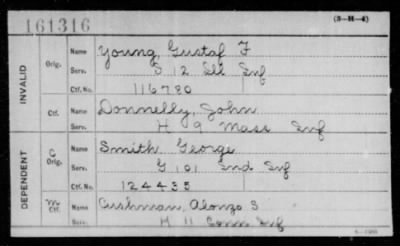 161316
(3-M-4)
INVALID
Orig.
Name Young, Gustaf F
Serv. S 12 Ill Inf
Ctf. No. 116780
Ctf.
Name Donnelly, John
Serv. H 9 Mass Inf
DEPENDENT
C
Orig.
Name Smith George
Serv. G 101 Ind Inf
Ctf. No. 124435
M
Ctf.
Name Cushman, Alonzo S
Serv. H 11 Conn Inf